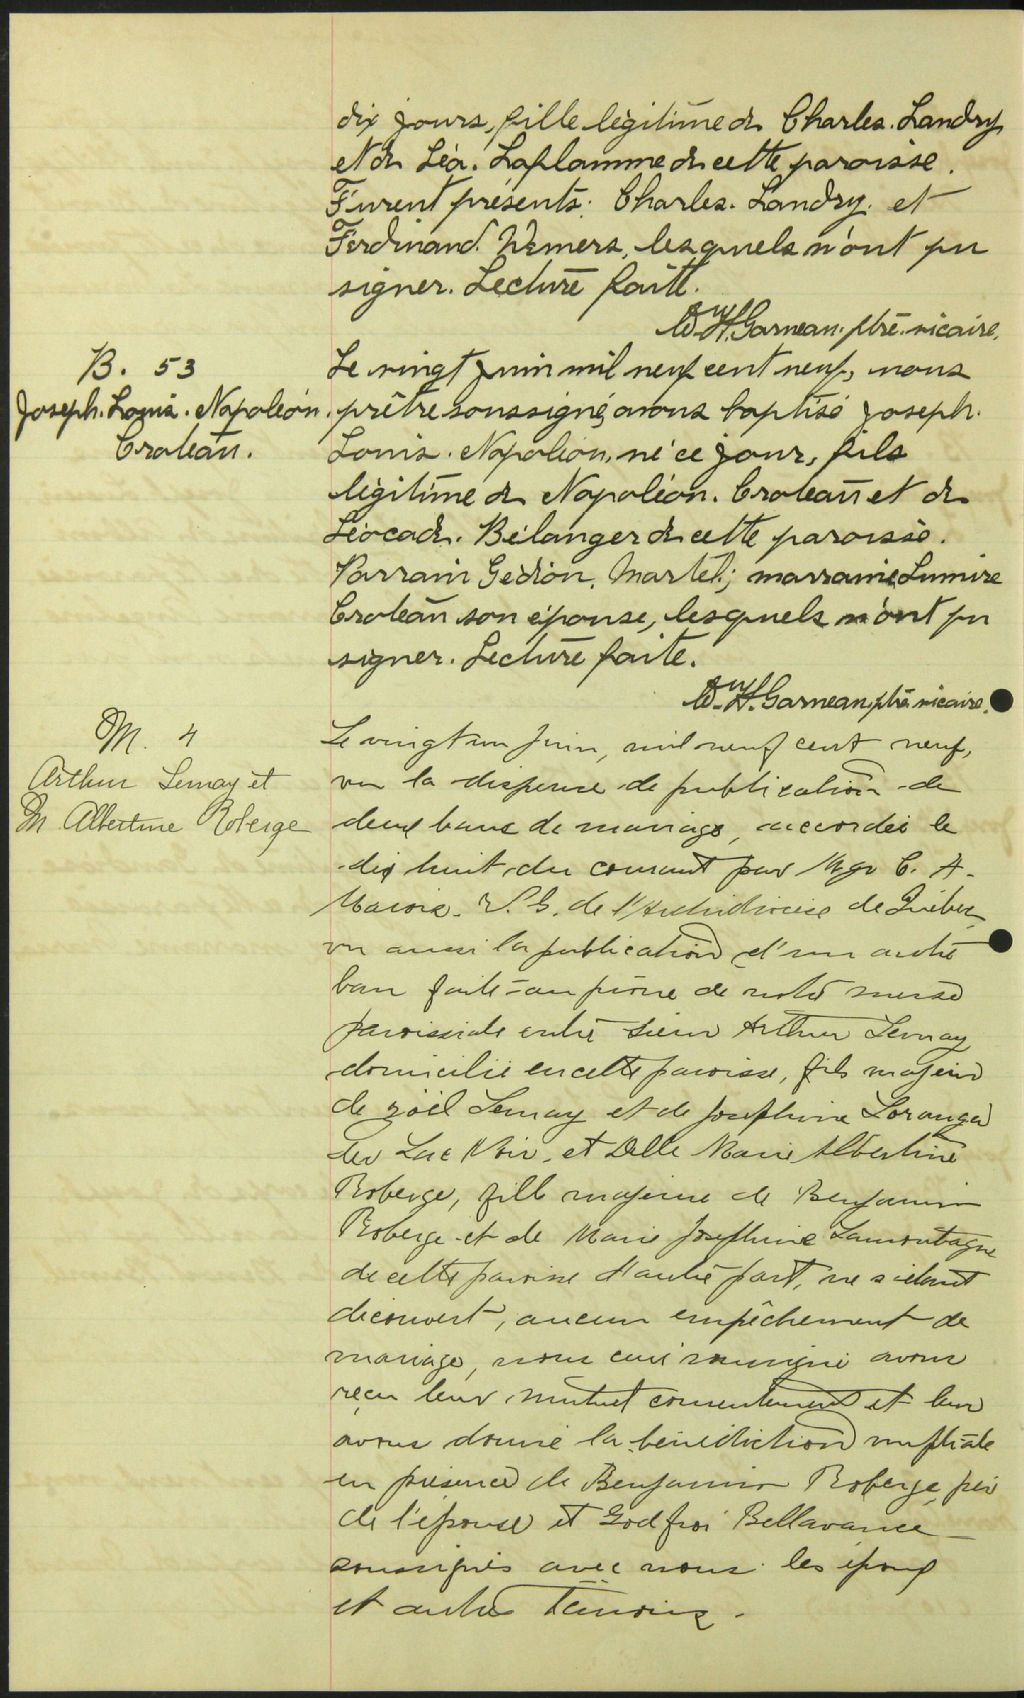 dix jours, fille légitime de Charles. Landry
et de Léa. Laflamme de cette paroisse.
Furent présents: Charles. Landry. et
Ferdinand. lesquels n'ont pu
signer. Lecture faite.
Wm H. Garneau. ptre. vicaire.
B. 53
Joseph. Louis. Napoléon.
Croteau.
Le vingt juin mil neuf cent neuf, nous
prêtre soussigné, avons baptisé Joseph.
Louis. Napoléon, né ce jour, fils
légitime de Napoléon. Croteau et de
Léocade. Bélanger de cette paroisse.
Parrain Gédéon. Martel; marraine Lumire
Croteau son épouse, lesquels n'ont pu
signer. Lecture faite.
Wm H. Garneau, ptre vicaire.
M. 4
Arthur Lemay et
M Albertine Roberge
Le vingt un juin, mil neuf cent neuf,
vu la dispense de publication de
deux bans de mariage, accordée le
dix huit du courant par Mgr C. A.
Marois. V. G. de l'Archidiocèse de Québec,
vu aussi la publication d'un autre
ban faite au prône de notre messe
paroissiale entre Sieur Arthur Lemay
domicilié en cette paroisse, fils majeur
de Joël Lemay et de Josephine Loranger
du Lac Noir, et Delle Marie Albertine
Roberge, fille majeure de Benjamin
Roberge et de Marie Josephine Lamontagne
de cette paroisse d'autre part, ne s'étant
découvert, aucun empêchement de
mariage, nous curé soussigné avons
reçu leur mutuel consentement et leur
avons donné la bénédiction nuptiale
en présence de Benjamin Roberge, père
de l'épouse et Godfroi Bellavance
soussignés avec nous les époux
et autres témoins.